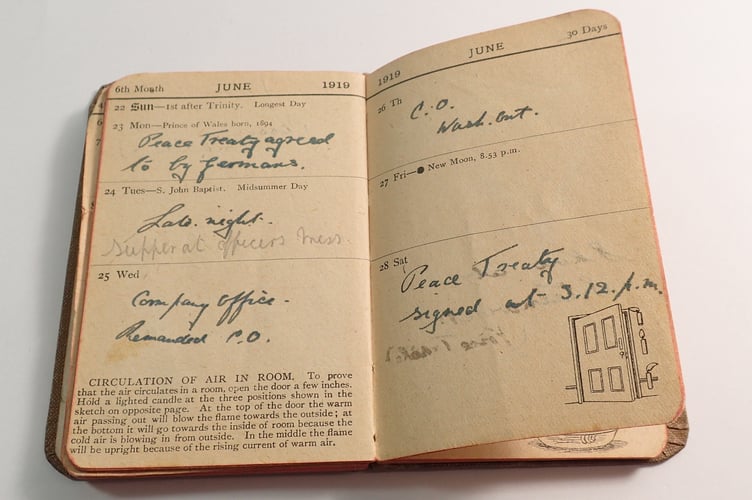 6th Month JUNE 1919
22 Sun—1st after Trinity. Longest Day
23 Mon—Prince of Wales born, 1894
Peace Treaty agreed
to by Germans.
24 Tues—S. John Baptist. Midsummer Day
Late night.
Supper at officers mess.
25 Wed
Company office.
Remanded C.O.
CIRCULATION OF AIR IN ROOM. To prove
that the air circulates in a room, open the door a few inches.
Hold a lighted candle at the three positions shown in the
sketch on opposite page. At the top of the door the warm
air passing out will blow the flame towards the outside; at
the bottom it will go towards the inside of room because the
cold air is blowing in from outside. In the middle the flame
will be upright because of the rising current of warm air.
1919 JUNE 30 Days
26 Th
C.O.
Wash. out.
27 Fri—● New Moon, 8.53 p.m.
28 Sat
Peace Treaty
signed at 3.12. p.m.